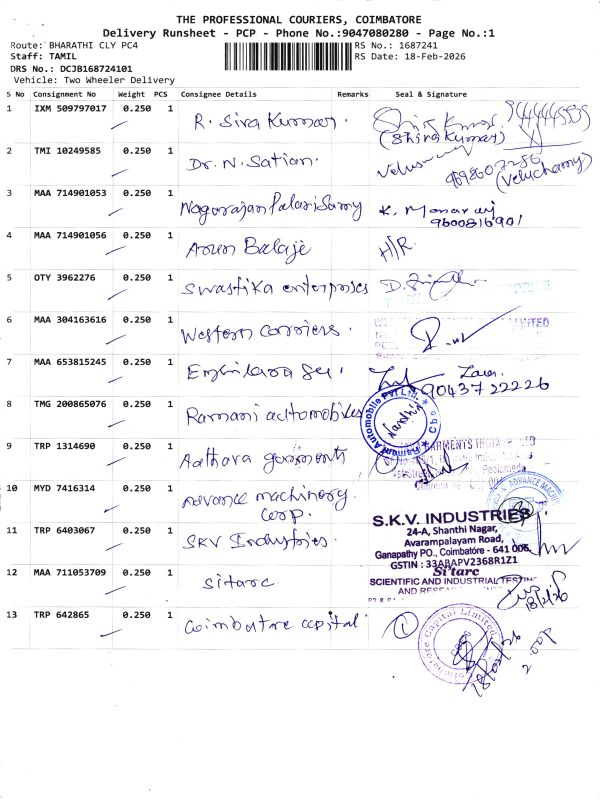 THE PROFESSIONAL COURIERS, COIMBATORE
Delivery Runsheet - PCP - Phone No.:9047080280 - Page No.:1
Route: BHARATHI CLY PC4 RS No.: 1687241
Staff: TAMIL RS Date: 18-Feb-2026
DRS No.: DCJB168724101
Vehicle: Two Wheeler Delivery
S No Consignment No Weight PCS Consignee Details Remarks Seal & Signature
1 IXM 509797017 0.250 1 R. Siva Kumar.
(Shiva Kumar)
2 TMI 10249585 0.250 1 Dr. N. Satian.
(Veluchamy)
3 MAA 714901053 0.250 1 Nagarajan Palanisamy K. Manaraj
9600816901
4 MAA 714901056 0.250 1 Arun Balaje H/R.
5 OTY 3962276 0.250 1 Swastika enterprises
6 MAA 304163616 0.250 1 Western carriers. LIMITED
7 MAA 653815245 0.250 1
9043722226
8 TMG 200865076 0.250 1 Ramani automobiles Ramani Automobile Pvt Ltd. Cbe
9 TRP 1314690 0.250 1 Aathava garments GARMENTS INDIA P LTD
10 MYD 7416314 0.250 1 Advance machinery
Corp. ADVANCE
11 TRP 6403067 0.250 1 SKV Industries. S.K.V. INDUSTRIES
24-A, Shanthi Nagar,
Avarampalayam Road,
Ganapathy PO., Coimbatore - 641 006.
GSTIN : 33ABAPV2368R1Z1
12 MAA 711053709 0.250 1 Sitarc Si'tarc
SCIENTIFIC AND INDUSTRIAL TESTING
AND RESEARCH
18/2/26
13 TRP 642865 0.250 1 Coimbatore capital 1 Coimbatore Capital Limited